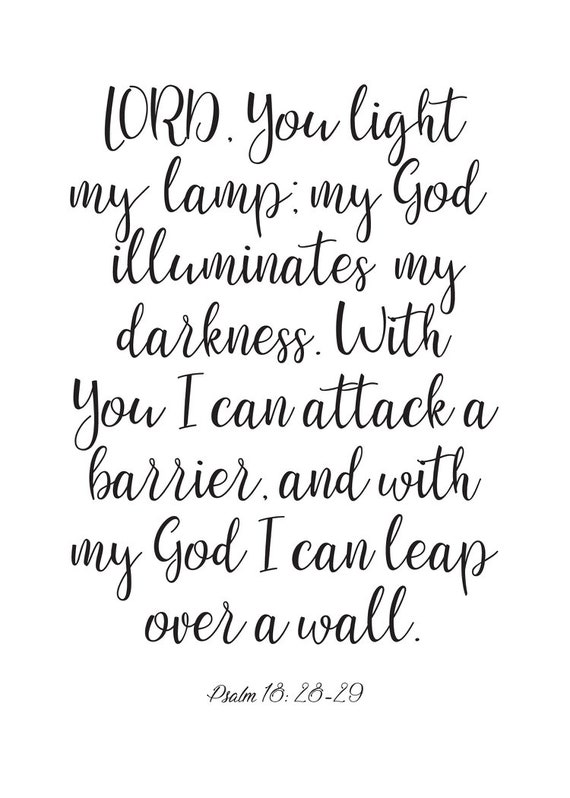 LORD, You light
my lamp; my God
illuminates my
darkness. With
You I can attack a
barrier, and with
my God I can leap
over a wall.
Psalm 18: 28-29